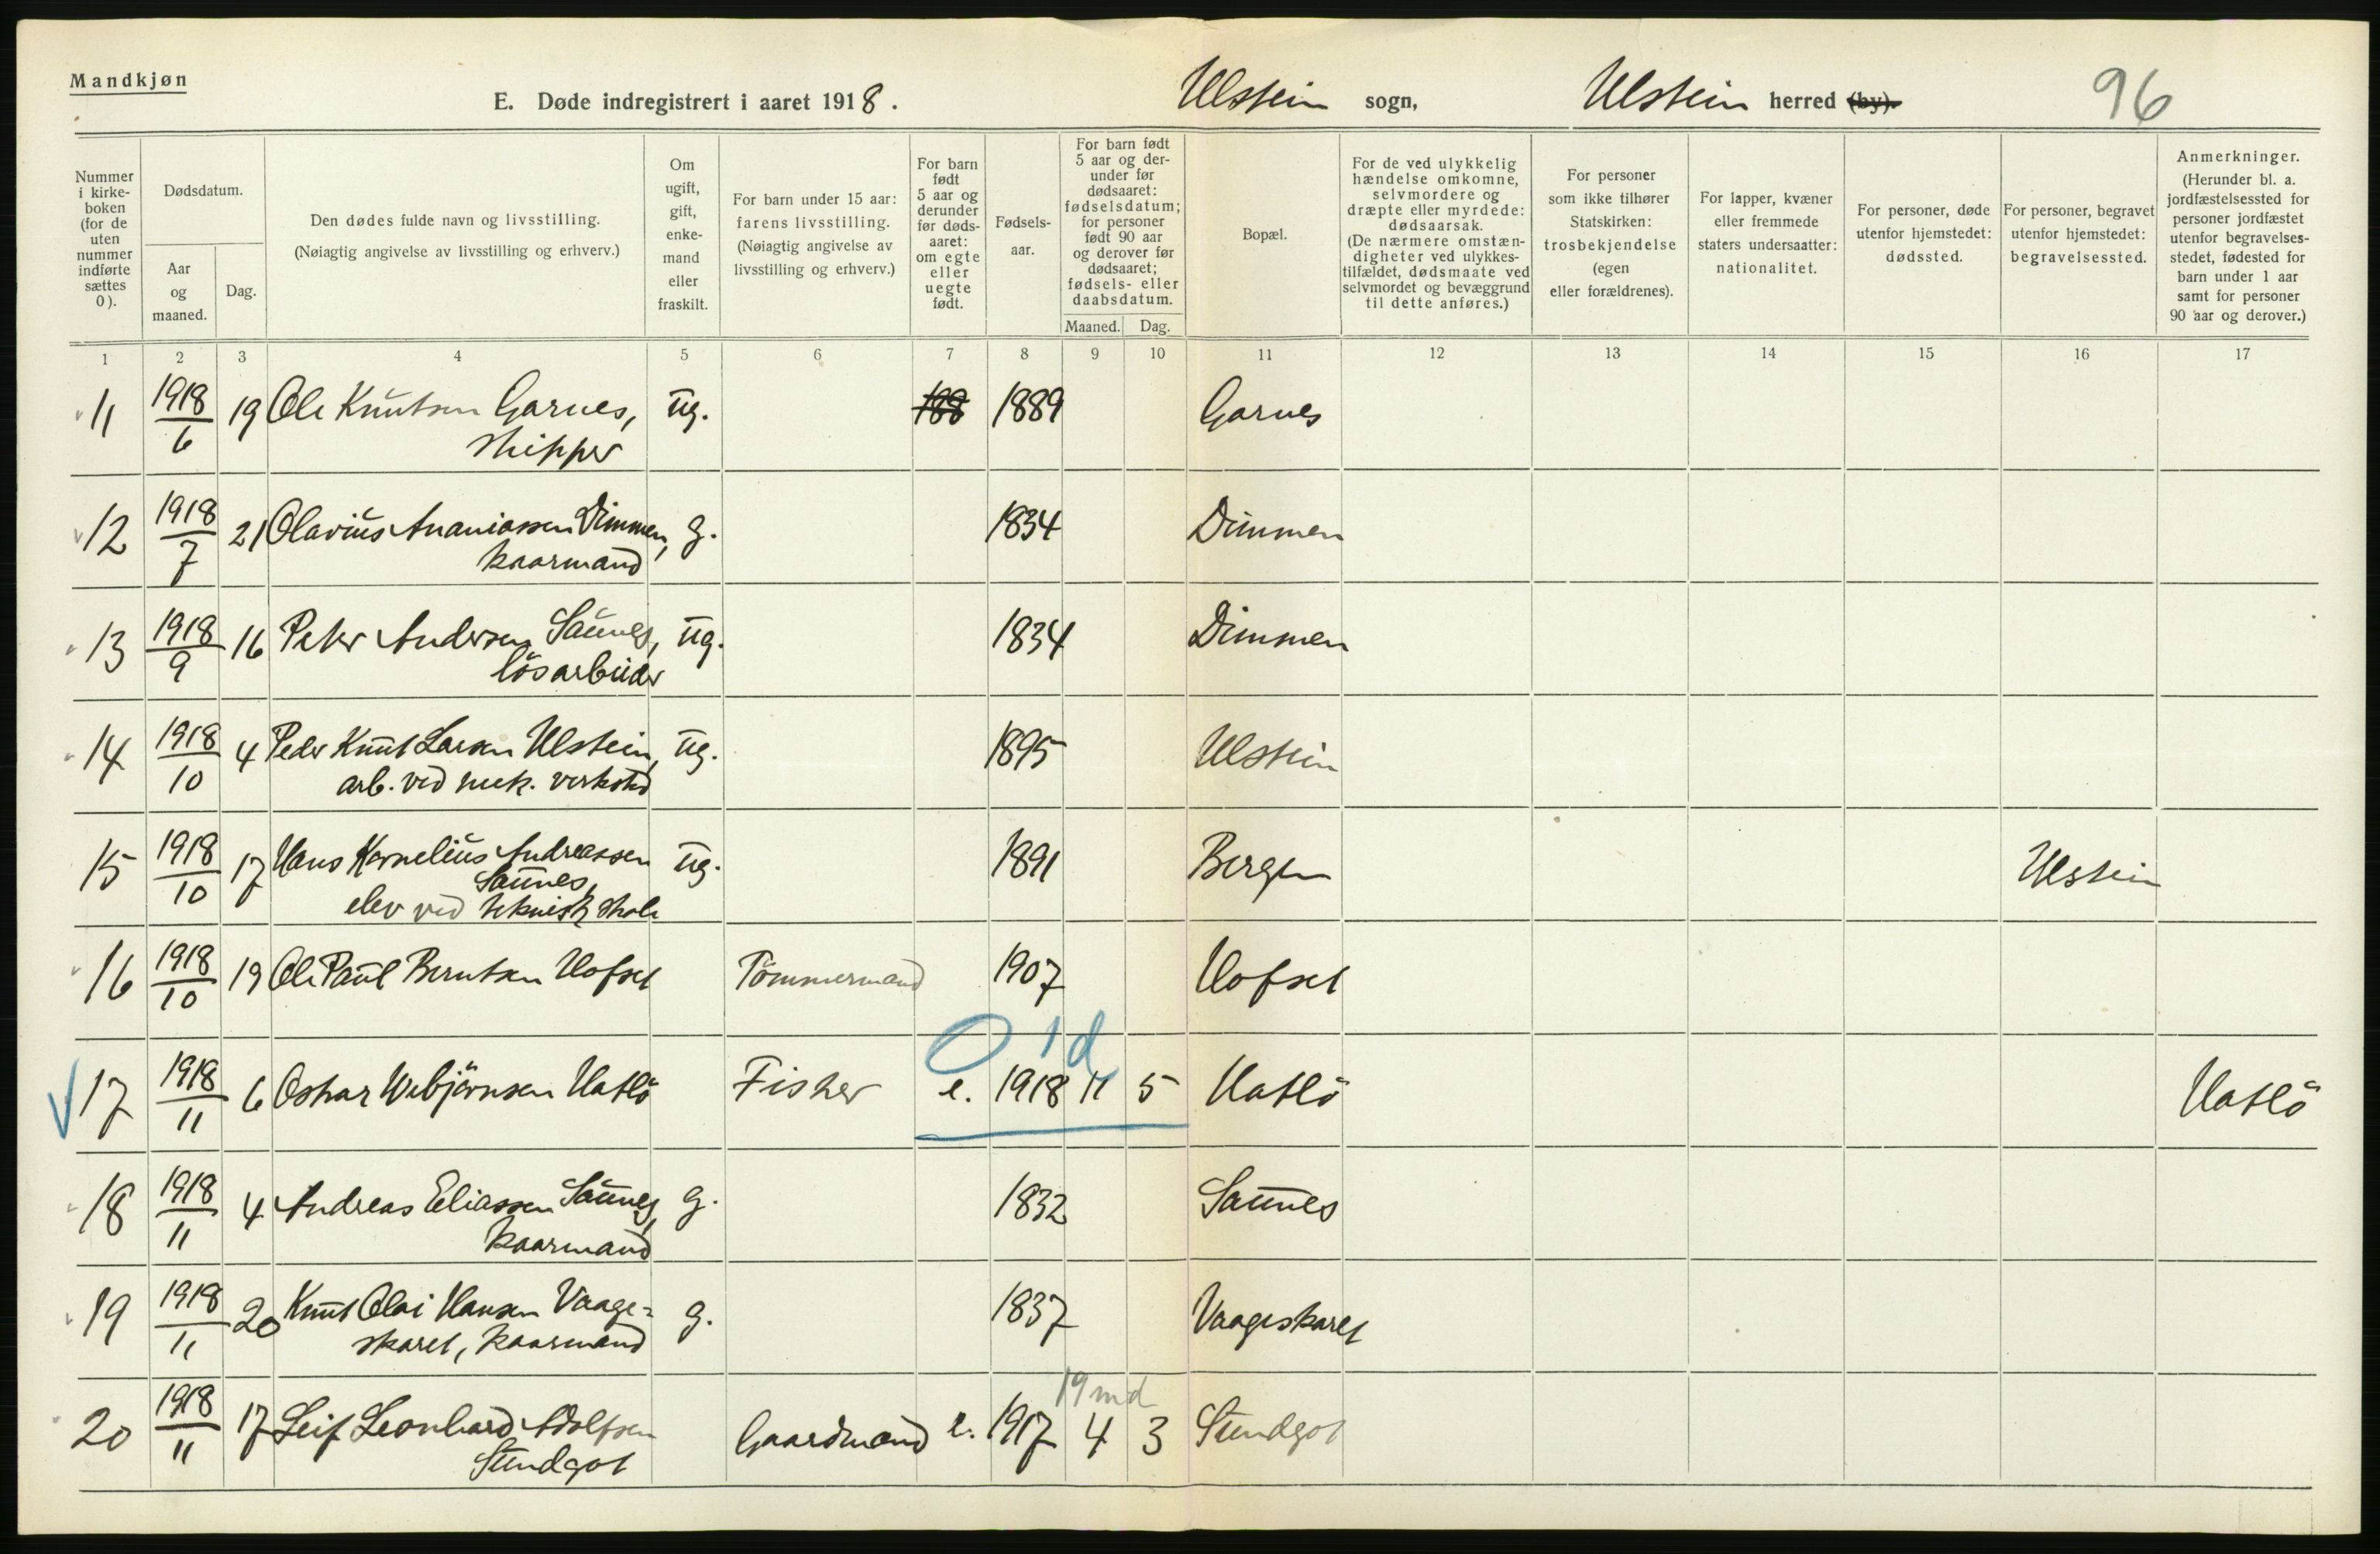 Mandkjøn
E. Døde indregistrert i aaret 1918. Ulstein sogn, Ulstein herred (by). 96
Nummer i kirke- boken (for de uten nummer indførte sættes 0).
Dødsdatum.
Aar og maaned.
Dag.
Den dødes fulde navn og livsstilling.
(Nøiagtig angivelse av livsstilling og erhverv.)
Om ugift, gift, enke- mand eller fraskilt.
For barn under 15 aar: farens livsstilling.
(Nøiagtig angivelse av livsstilling og erhverv.)
For barn født 5 aar og derunder før døds- aaret: om egte eller uegte født.
Fødsels- aar.
For barn født 5 aar og der- under før dødsaaret: fødselsdatum; for personer født 90 aar og derover før dødsaaret; fødsels- eller daabsdatum.
Maaned. Dag.
Bopæl.
For de ved ulykkelig hændelse omkomne, selvmordere og dræpte eller myrdede: dødsaarsak.
(De nærmere omstæn- digheter ved ulykkes- tilfældet, dødsmaate ved selvmordet og bevæggrund til dette anføres.)
For personer som ikke tilhører Statskirken: trosbekjendelse (egen eller forældrenes).
For lapper, kvæner eller fremmede staters undersaatter: nationalitet.
For personer, døde utenfor hjemstedet: dødssted.
For personer, begravet utenfor hjemstedet: begravelsessted.
Anmerkninger.
(Herunder bl. a. jordfæstelsessted for personer jordfæstet utenfor begravelses- stedet, fødested for barn under 1 aar samt for personer 90 aar og derover.)
1 2 3 4 5 6 7 8 9 10 11 12 13 14 15 16 17
11 1918/6 19 Ole Knutsen Garnes, ug. 188 1889 Garnes
skipper
12 1918/7 21 Olavius Ananiassen Dimmen, g. 1834 Dimmen
kaarmand
13 1918/9 16 Peter Andersen Saunes, ug. 1834 Dimmen
løsarbeider
14 1918/10 4 Peder Knut Larsen Ulstein, ug. 1895 Ulstein
arb. ved mek. verksted
15 1918/10 17 Hans Kornelius Andreassen ug. 1891 Bergen Ulstein
Saunes,
elev ved teknisk skole
16 1918/10 19 Ole Paul Berntsen Hofset Tömmermand 1907 Hofset
0 1 d
17 1918/11 6 Oskar Vebjörnsen Hatlö Fisker e. 1918 11 5 Hatlö Hatlö
18 1918/11 4 Andreas Eliassen Saunes, g. 1832 Saunes
kaarmand
19 1918/11 20 Knut Olai Hansen Vaage= g. 1837 Vaageskaret
skaret, kaarmand
19 md
20 1918/11 17 Leif Leonhard Adolfsen Gaardmand e. 1917 4 3 Sundgot
Sundgot